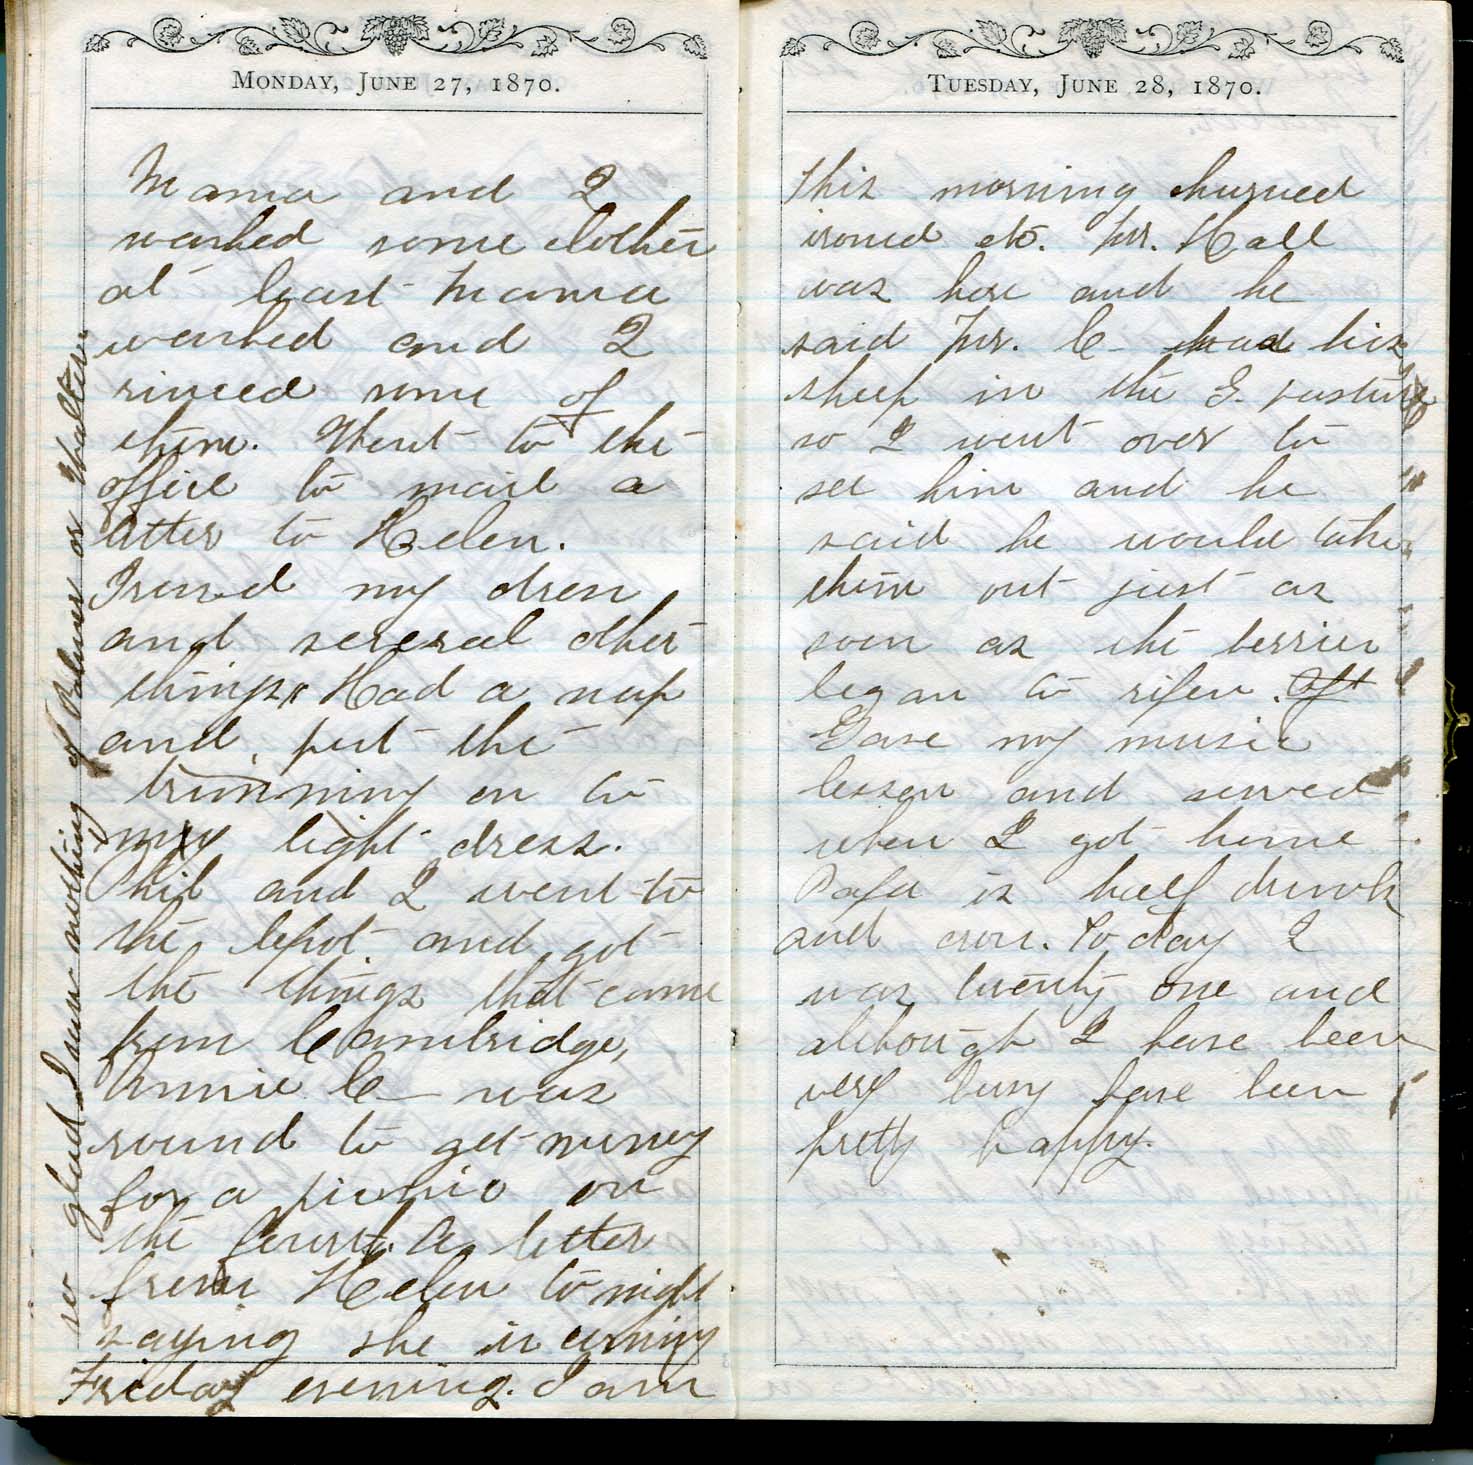 MONDAY, JUNE 27, 1870.
Mama and I
washed some clothes
at least Mama
washed and I
rinced some of
them. Went to the
office to mail a
letter to Helen.
Ironed my dress
and several other
things, Had a nap
and put the
trimming on to
my light dress.
Phil and I went to
the depot and got
the things that came
from Cambridge,
Annie C— was
round to get money
for a picnic on
the fourth. A letter
from Helen to night
saying she is coming
Friday evening. I am
so glad. I saw nothing of Palmer or Walter.
TUESDAY, JUNE 28, 1870.
This morning churned
ironed etc. Mr. Hall
was here and he
said Mr. C— had his
sheep in the G. pasture
so I went over to
see him and he
said he would take
them out just as
soon as the berries
began to ripen. Aft
Gave my music
lesson and sewed
when I got home -
Papa is half drunk
and cross. To day I
was twenty one and
although I have been
very busy have been
pretty happy.